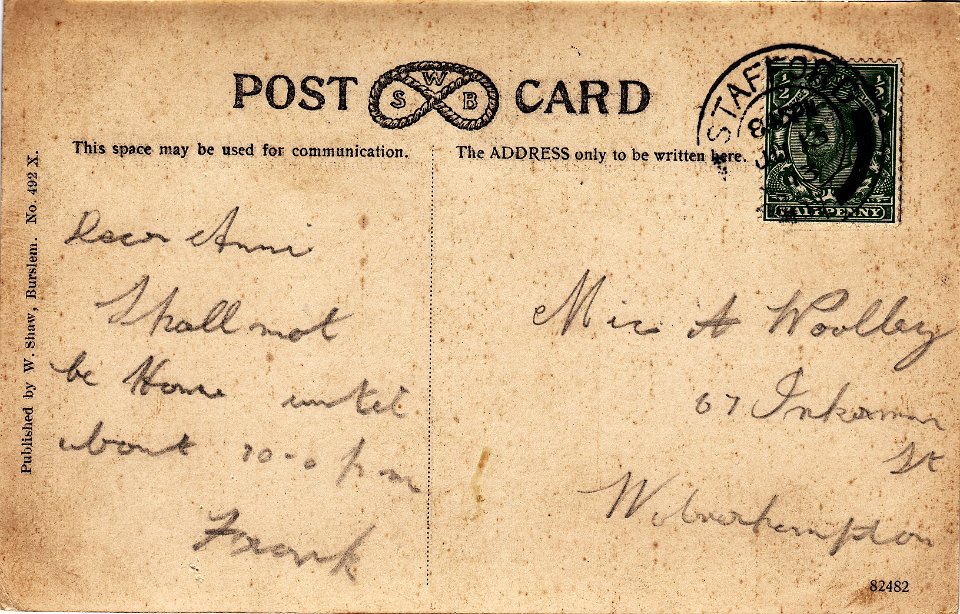 POST CARD
W
S B
This space may be used for communication.
The ADDRESS only to be written here.
Published by W. Shaw, Burslem. No. 492 X.
STAFFORD
13
HALFPENNY
Dear Anni
Shall not
be Home until
about 10-0 pm
Frank
A Woolley
67 Inkerman
St
Wolverhampton
82482